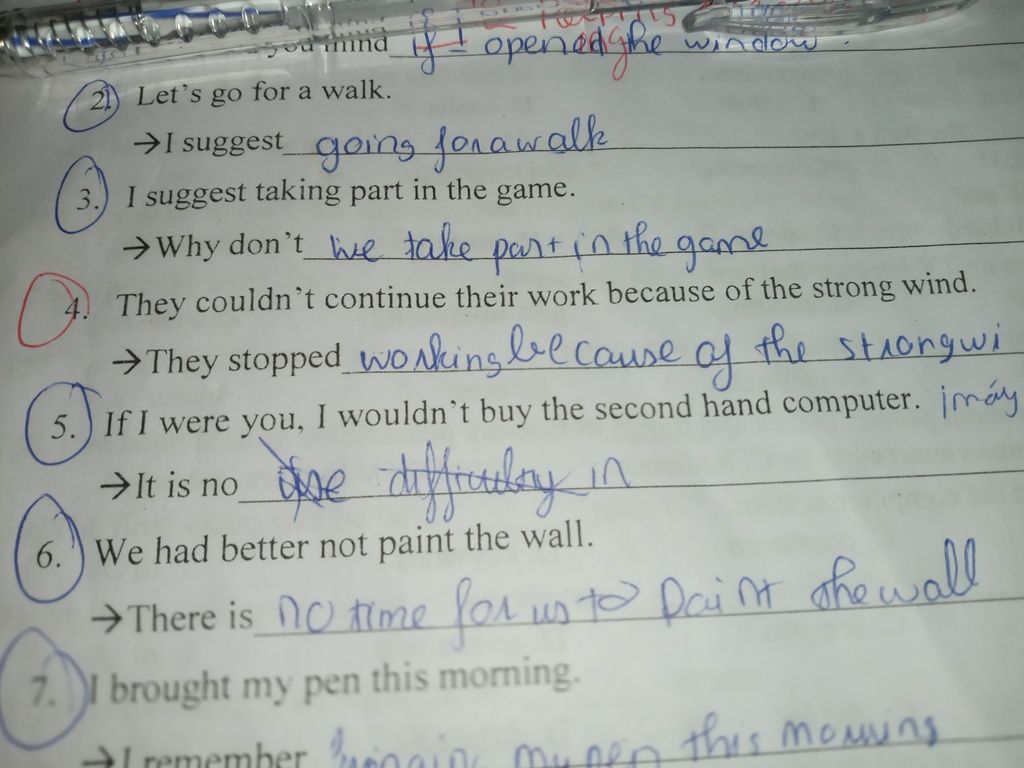 you mind if I opened the window.
2. Let's go for a walk.
→ I suggest going for a walk
3. I suggest taking part in the game.
→ Why don't we take part in the game
4. They couldn't continue their work because of the strong wind.
→ They stopped working because of the strong wi
5. If I were you, I wouldn't buy the second hand computer.
→ It is no use difficulty in
6. We had better not paint the wall.
→ There is no time for us to paint the wall
7. I brought my pen this morning.
→ I remember my pen this morning